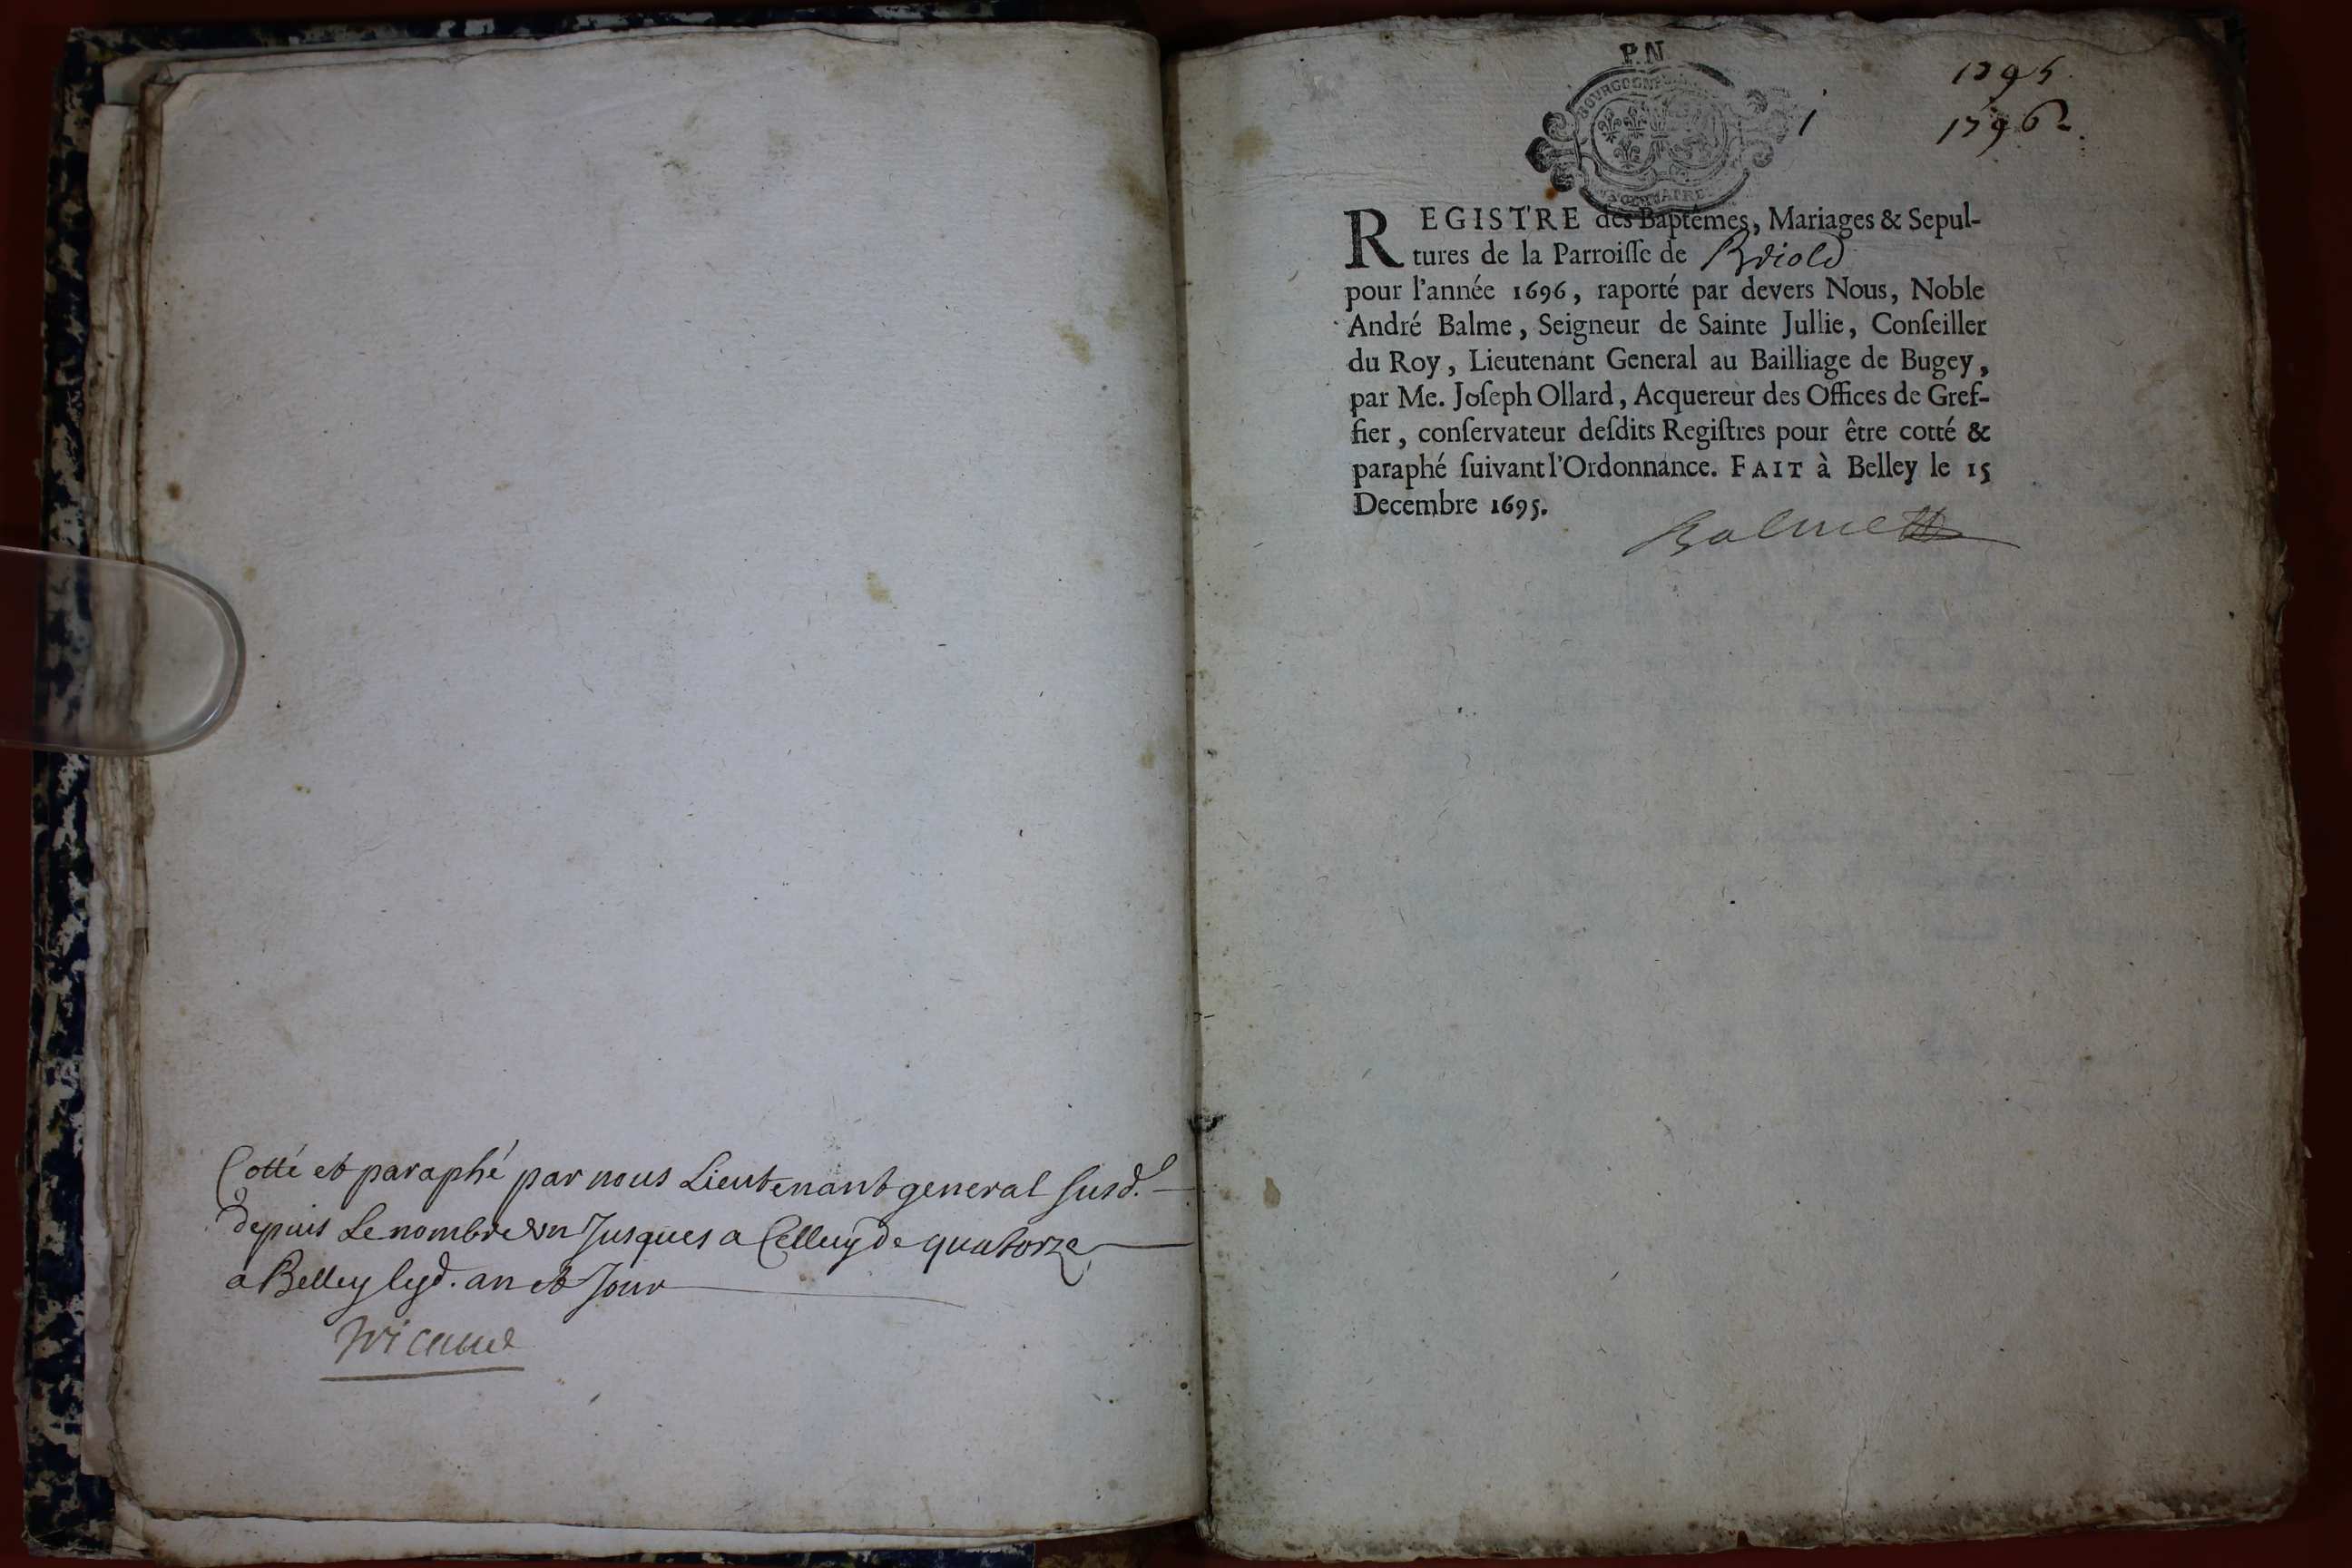 Cotté et paraphé par nous Lieutenant general susd.
depuis Le nombre un Jusques a Celluy de quatorze
a Belley led. an et Jour
P.N
BOURGOGNE
QUATRE
1
REGISTRE des Baptêmes, Mariages & Sepul-
tures de la Parroiſſe de Briold
pour l'année 1696, raporté par devers Nous, Noble
André Balme, Seigneur de Sainte Jullie, Conſeiller
du Roy, Lieutenant General au Bailliage de Bugey,
par Me. Joſeph Ollard, Acquereur des Offices de Gref-
fier, conſervateur deſdits Regiſtres pour être cotté &
paraphé ſuivant l'Ordonnance. FAIT à Belley le 15
Decembre 1695.
Balme